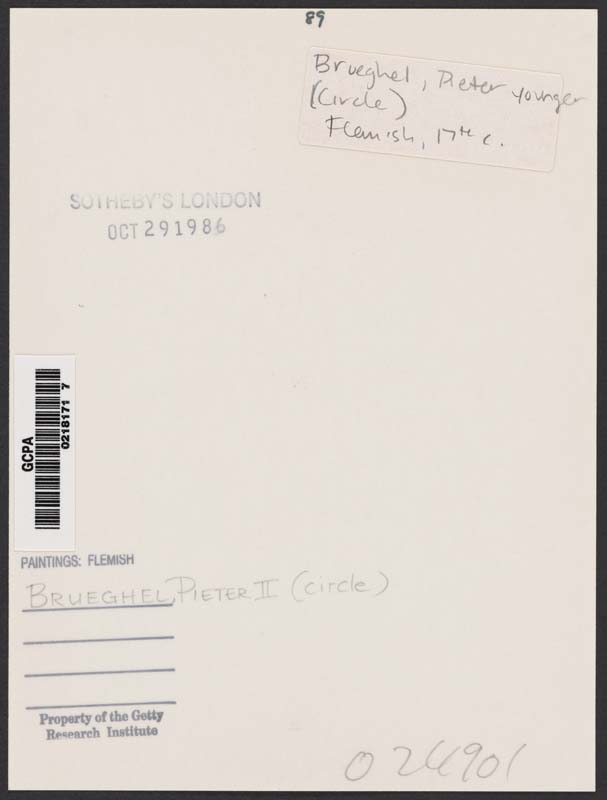 89
Brueghel, Pieter younger
(Circle)
Flemish, 17th c.
SOTHEBY'S LONDON
OCT 29 1986
GCPA
0218171 7
PAINTINGS: FLEMISH
BRUEGHEL, PIETER II (circle)
Property of the Getty
Research Institute
024901